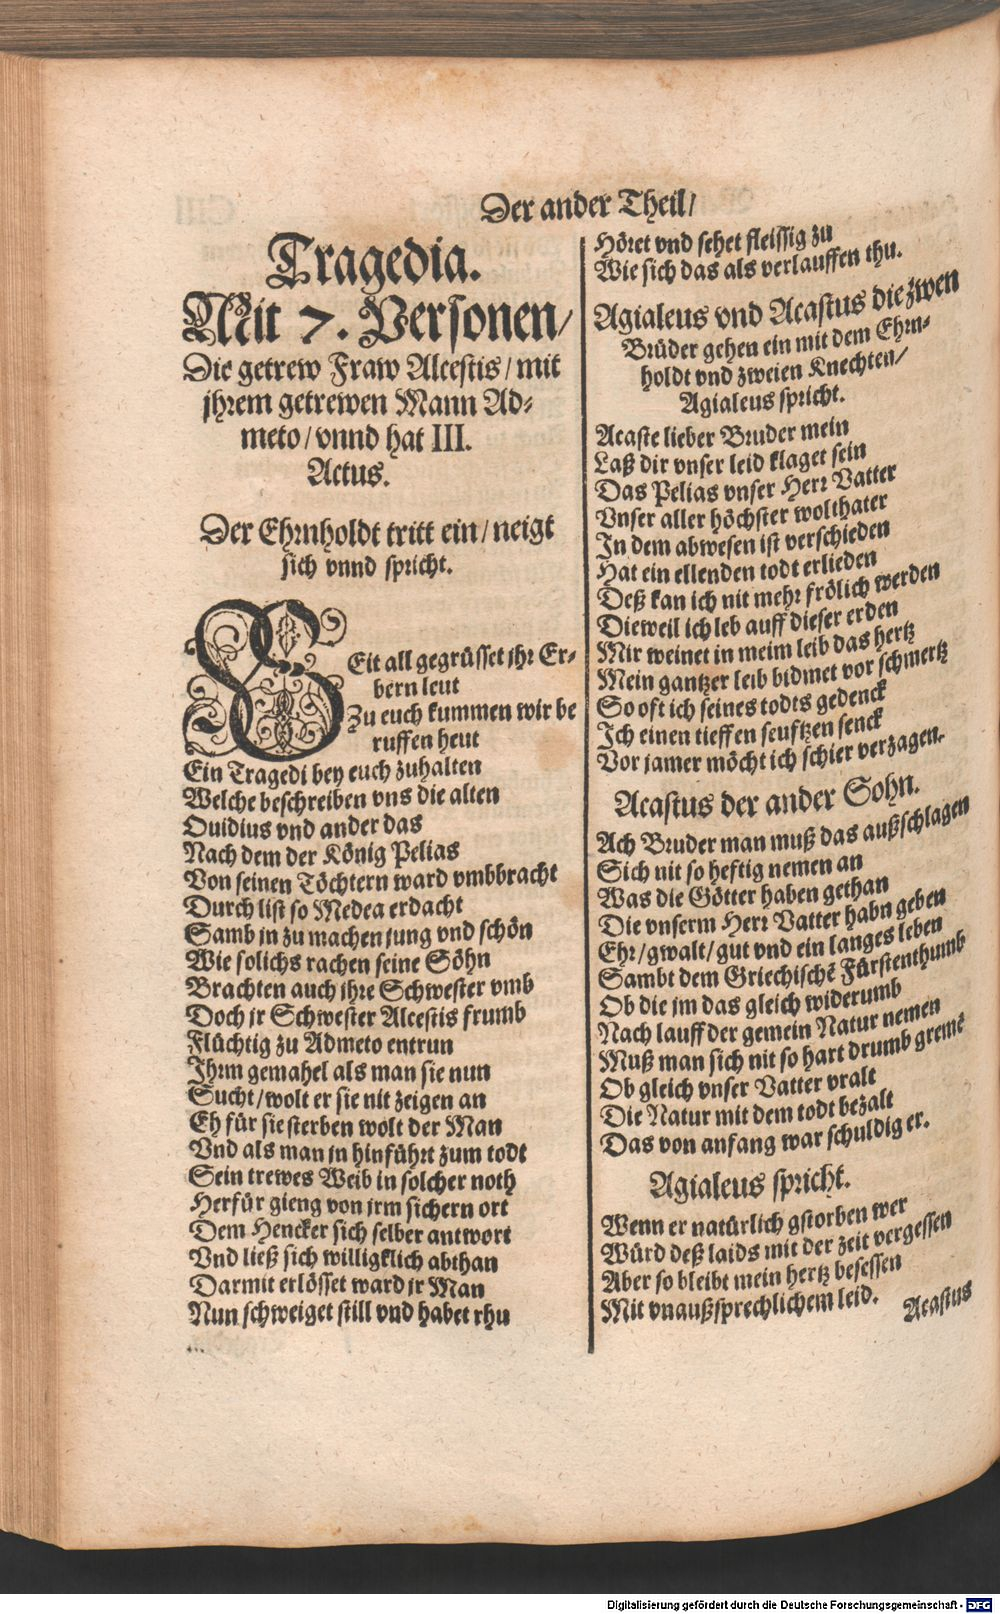 Der ander Theil/
Tragedia.
Mit 7. Personen/
Die getrew Fraw Alcestis/ mit
jhrem getrewen Mann Ad⸗
meto/ vnnd hat III.
Actus.
Der Ehrnholdt tritt ein/ neigt
sich vnnd spricht.
SEit all gegrüsset jhr Er⸗
bern leut
Zu euch kummen wir be
ruffen heut
Ein Tragedi bey euch zuhalten
Welche beschreiben vns die alten
Ouidius vnd ander das
Nach dem der König Pelias
Von seinen Töchtern ward vmbbracht
Durch list so Medea erdacht
Samb jn zu machen jung vnd schön
Wie solichs rachen seine Söhn
Brachten auch jhre Schwester vmb
Doch jr Schwester Alcestis frumb
Flüchtig zu Admeto entrun
Ihrm gemahel als man sie nun
Sucht/ wolt er sie nit zeigen an
Eh für sie sterben wolt der Man
Vnd als man jn hinführt zum todt
Sein trewes Weib in solcher noth
Herfür gieng von jrm sichern ort
Dem Hencker sich selber antwort
Vnd ließ sich willigklich abthan
Darmit erlösset ward jr Man
Nun schweiget still vnd habet rhu
Höret vnd sehet fleissig zu
Wie sich das als verlauffen thu.
Agialeus vnd Acastus die zwen
Brüder gehen ein mit dem Ehrn⸗
holdt vnd zweien Knechten/
Agialeus spricht.
Acaste lieber Bruder mein
Laß dir vnser leid klaget sein
Das Pelias vnser Herr Vatter
Vnser aller höchster wolthater
In dem abwesen ist verschieden
Hat ein ellenden todt erlieden
Deß kan ich nit mehr frölich werden
Dieweil ich leb auff dieser erden
Mir weinet in meim leib das hertz
Mein gantzer leib bidmet vor schmertz
So oft ich seines todts gedenck
Ich einen tieffen seufftzen senck
Vor jamer möcht ich schier verzagen.
Acastus der ander Sohn.
Ach Bruder man muß das außschlagen
Sich nit so heftig nemen an
Was die Götter haben gethan
Die vnserm Herr Vatter habn geben
Ehr/ gwalt/ gut vnd ein langes leben
Sambt dem Griechischē Fürstenthumb
Ob die jm das gleich widerumb
Nach lauff der gemein Natur nemen
Muß man sich nit so hart drumb gremē
Ob gleich vnser Vatter vralt
Die Natur mit dem todt bezalt
Das von anfang war schuldig er.
Agialeus spricht.
Wenn er natürlich gstorben wer
Würd deß laids mit der zeit vergessen
Aber so bleibt mein hertz besessen
Mit vnaußsprechlichem leid.
Acastus
Digitalisierung gefördert durch die Deutsche Forschungsgemeinschaft - DFG